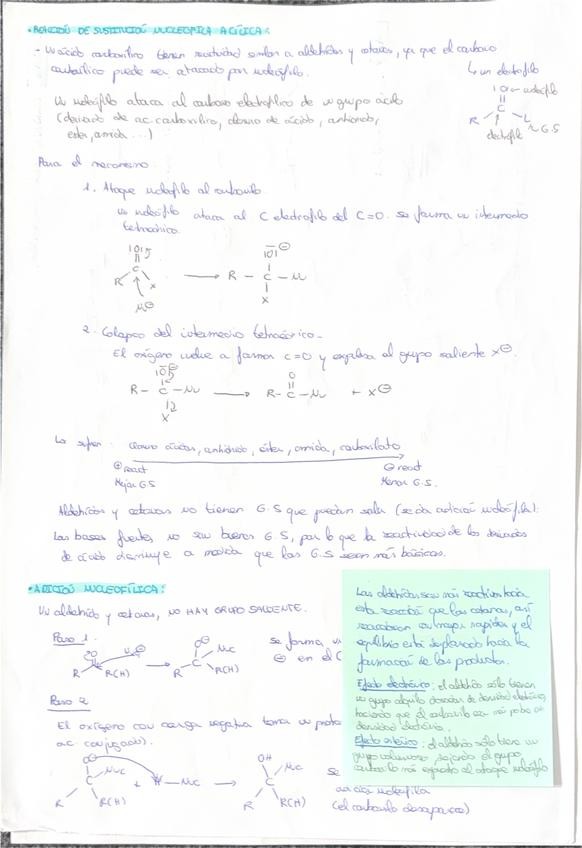 • REACCIÓN DE SUSTITUCIÓN NUCLEOFÍLICA ACÍLICA:
- ácido carboxílico tienen reactividad similar a aldehídos y cetonas, ya que el carbono
carboxílico puede ser atacado por nucleófilo.
↳ un electrófilo
Un nucleófilo ataca al carbono electrofílico de un grupo ácido
(derivado de ac. carboxílico, cloruro de ácido, anhídrido,
éster, amida ...)
|O| ← nucleófilo
C
R L → G.S
electrófilo
Para el mecanismo
1. Ataque nucleófilo al carbonilo
un nucleófilo ataca al C electrófilo del C=O. se forma un intermedio
tetraédrico.
|O| |O| ⊖
R C X → R - C - Nu
Nu⊖ X
2. Colapso del intermedio tetraédrico -
El oxígeno vuelve a formar C=O y expulsa al grupo saliente X⊖.
|O|⊖ O
R - C - Nu → R - C - Nu + X⊖
X
cloruro ácido, anhídrido, éster, amida, carboxilato
⊕ react ⊖ react
Mejor G.S Menor G.S.
Aldehídos y cetonas no tienen G.S que puedan salir (se da adición nucleófila):
Las bases fuertes no son buenos G.S, por lo que la reactividad de los derivados
de ácido disminuye a medida que los G.S sean más básicos.
• ADICIÓN NUCLEOFÍLICA:
Un aldehído y cetonas, NO HAY GRUPO SALIENTE.
Paso 1.
se forma
⊖ en el
R R(H) → O⊖ C Nuc R R(H)
Paso 2
El oxígeno con carga negativa toma un
ac. conjugado).
O⊖ C Nuc R R(H) + H - Nuc → OH C Nuc R R(H)
Se
adición nucleófila
(el carbonilo desaparece)
Los aldehídos son más reactivos hacia
esta reacción que las cetonas, así
reaccionan mas rápidos y el
equilibrio está desplazado hacia la
formación de los productos.
Efecto electrónico: el aldehído sólo tienen
un grupo alquilo donador de densidad electrónica,
haciendo que el carbonilo sea más pobre en
densidad electrónica.
Efecto estérico: el aldehído sólo tiene un
grupo voluminoso, dejando el grupo
carbonilo más expuesto al ataque nucleófilo